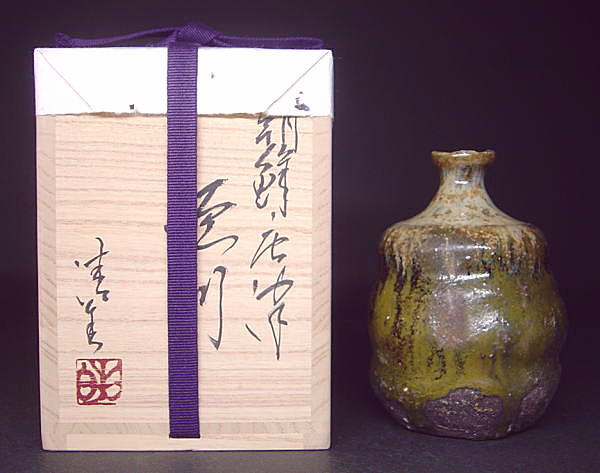 朝鮮唐津
徳利
清美